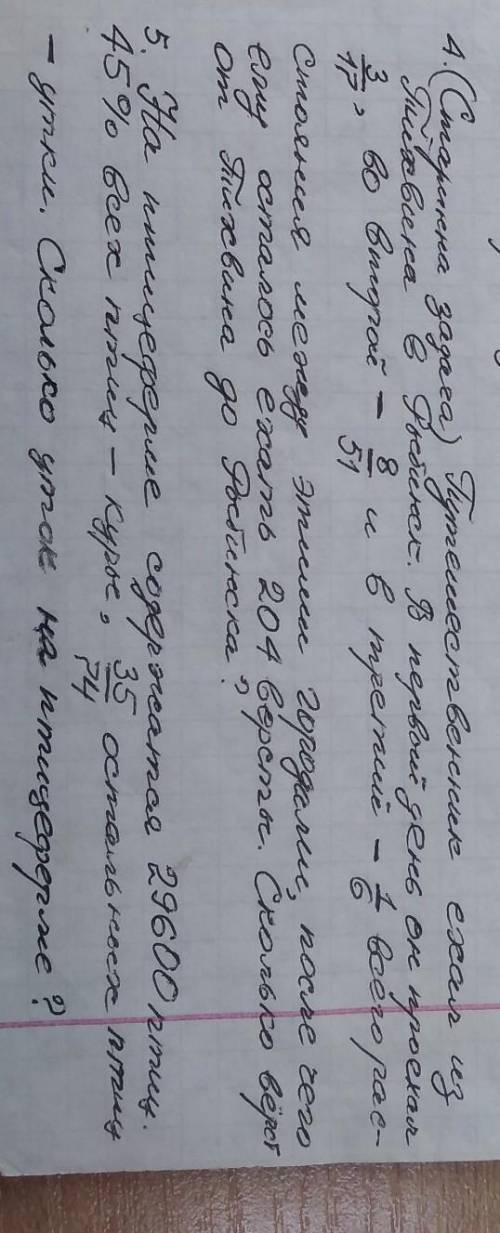 4. (Старинна задача) Путешественник ехал из
Тихвина в Рыбинск. В первый день он проехал
3/17, во второй – 8/51 и в третий – 1/6 всего рас-
стояния между этими городами, после чего
ему осталось ехать 204 версты. Сколько вёрст
от Тихвина до Рыбинска?
5. На птицеферме содержатся 29600 птиц.
45% всех птиц – куры, 35/74 остальных птиц
– утки. Сколько уток на птицеферме?